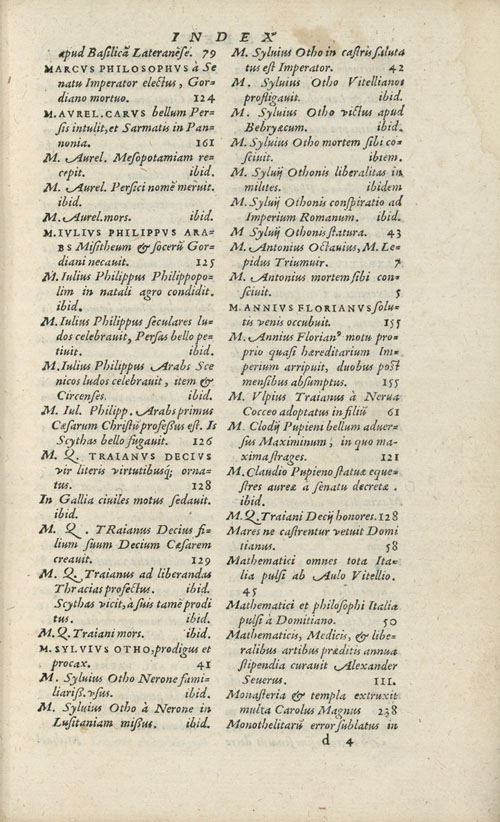 INDEX
apud Basilicã Lateranẽse. 79
MARCVS PHILOSOPHVS à Se
natu Imperator electus, Gor-
diano mortuo. 124
M. AVREL. CARVS bellum Per-
sis intulit, et Sarmatis in Pan-
nonia. 161
M. Aurel. Mesopotamiam re-
cepit. ibid.
M. Aurel. Persici nomẽ meruit.
ibid.
M. Aurel. mors. ibid.
M. IVLIVS PHILIPPVS ARA-
BS Misitheum & socerũ Gor-
diani necauit. 125
M. Iulius Philippus Philippopo-
lim in natali agro condidit.
ibid.
M. Iulius Philippus seculares lu-
dos celebrauit, Persas bello pe-
tiuit. ibid.
M. Iulius Philippus Arabs Sce
nicos ludos celebrauit, item &
Circenses. ibid.
M. Iul. Philipp. Arabs primus
Cæsarum Christũ professus est. Is
Scythas bello fugauit. 126
M. Q. TRAIANVS DECIVS
vir literis virtutibusq; orna-
tus. 128
In Gallia ciuiles motus sedauit.
ibid.
M. Q. TRaianus Decius fi-
lium suum Decium Cæsarem
creauit. 129
M. Q. Traianus ad liberandas
Thracias profectus. ibid.
Scythas vicit, à suis tamẽ prodi
tus. ibid.
M. Q. Traiani mors. ibid.
M. SYLVIVS OTHO, prodigus et
procax. 41
M. Syluius Otho Nerone fami-
liariß. vsus. ibid.
M. Syluius Otho à Nerone in
Lusitaniam missus. ibid.
M. Syluius Otho in castris saluta
tus est Imperator. 42
M. Syluius Otho Vitellianos
profligauit. ibid.
M. Syluius Otho victus apud
Bebryacum. ibid.
M. Syluius Otho mortem sibi co-
sciuit. ibiem.
M. Syluij Othonis liberalitas in
milites. ibidem
M. Syluij Othonis conspiratio ad
Imperium Romanum. ibid.
M Syluij Othonis statura. 43
M. Antonius Octauius, M. Le-
pidus Triumuir. 7
M. Antonius mortem sibi con-
sciuit. 5
M. ANNIVS FLORIANVS solu-
tis venis occubuit. 155
M. Annius Florianꝰ motu pro-
prio quasi hæreditarium Im-
perium arripuit, duobus post
mensibus absumptus. 155
M. Vlpius Traianus à Nerua
Cocceo adoptatus in filiũ 61
M. Clodij Pupieni bellum aduer-
sus Maximinum, in quo ma-
xima strages. 121
M. Claudio Pupieno statuæ eque-
stres aureæ à senatu decretæ.
ibid.
M. Q. Traiani Decij honores. 128
Mares ne castrentur vetuit Domi
tianus. 58
Mathematici omnes tota Ita-
lia pulsi ab Aulo Vitellio.
45
Mathematici et philosophi Italia
pulsi à Domitiano. 50
Mathematicis, Medicis, & libe-
ralibus artibus præditis annua
stipendia curauit Alexander
Seuerus. 111.
Monasteria & templa extruxit
multa Carolus Magnus 238
Monothelitarũ error sublatus in
d 4